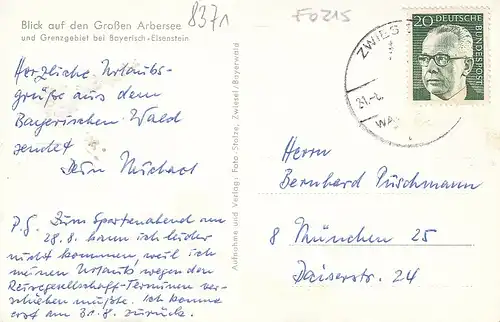 Blick auf den Großen Arbersee
und Grenzgebiet bei Bayerisch-Eisenstein
8371
F0215
ZWIES
21.-8.
WA
20
DEUTSCHE
BUNDESPOST
Herzliche Urlaubs-
grüße aus dem
Bayerischen Wald
sendet
Dein Michael
P.S. Zum Spartenabend am
28.8. kann ich leider
nicht kommen, weil ich
meinen Urlaub wegen den
Reisegesellschaft-Terminen ver-
schieben mußte. Ich komme
erst am 31.8. zurück.
Aufnahme und Verlag: Foto-Stolze, Zwiesel/Bayerwald
Herrn
Bernhard Püschmann
8 München 25
Daiserstr. 24